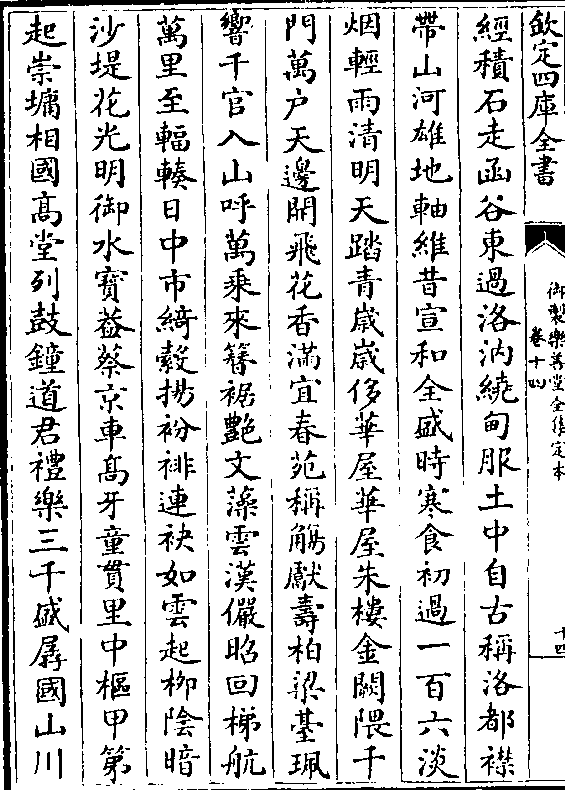 欽定四庫全書
御製樂善堂全集定本
卷十四
十四
經積石走函谷東過洛汭繞甸服土中自古稱洛都襟
帶山河雄地軸維昔宣和全盛時寒食初過一百六淡
烟輕雨清明天踏青嵗嵗侈華屋華屋朱樓金闕隈千
門萬户天邊開飛花香滿宜春苑稱觴獻壽柏梁臺珮
響千官入山呼萬乘來簪裾艷文藻雲漢儼昭回梯航
萬里至輻輳日中市綺縠揚衯裶連袂如雲起栁陰暗
沙堤花光明御水寶葢蔡京車髙牙童貫里中樞甲第
起崇墉相國髙堂列鼓鐘道君禮樂三千盛孱國山川